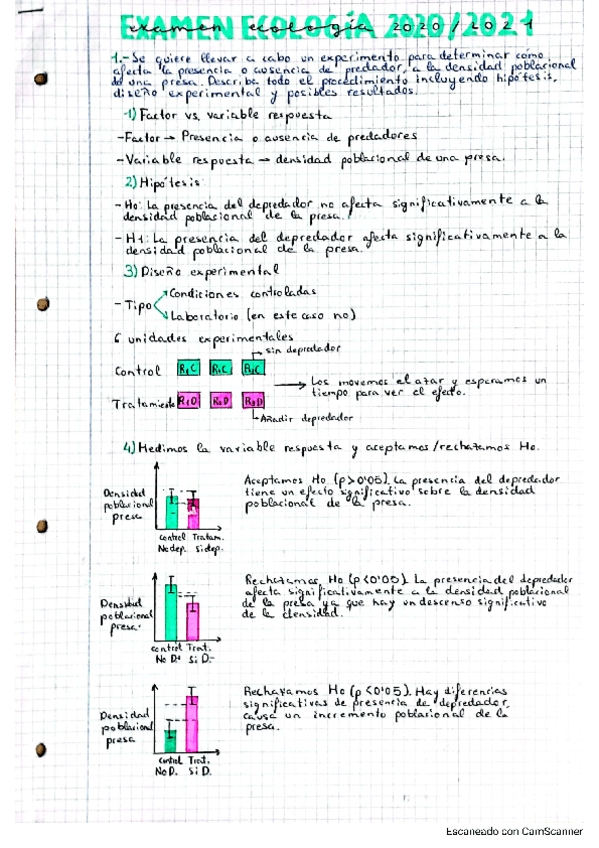 EXAMEN ECOLOGÍA 2020/2021
1.- Se quiere llevar a cabo un experimento para determinar cómo
afecta la presencia o ausencia de predador, a la densidad poblacional
de una presa. Describa todo el procedimiento incluyendo hipótesis,
diseño experimental y posibles resultados.
1) Factor vs variable respuesta
-Factor → Presencia o ausencia de predadores
-Variable respuesta → densidad poblacional de una presa.
2) Hipótesis
- Ho: La presencia del depredador no afecta significativamente a la
densidad poblacional de la presa.
- H1: La presencia del depredador afecta significativamente a la
densidad poblacional de la presa.
3) Diseño experimental
- Tipo
Condiciones controladas
Laboratorio (en este caso no)
6 unidades experimentales
sin depredador
Control R1C R2C R3C
→ Los movemos al azar y esperamos un
tiempo para ver el efecto.
Tratamiento R1D R2D R3D
Añadir depredador
4) Medimos la variable respuesta y aceptamos/rechazamos Ho.
Densidad
poblacional
presa
Control Tratam.
No dep. Si dep.
Aceptamos Ho (p>0'05). La presencia del depredador
tiene un efecto significativo sobre la densidad
poblacional de la presa.
Densidad
poblacional
presa.
Control Trat.
No D. Si D.
Rechazamos Ho (p<0'05). La presencia del depredador
afecta significativamente a la densidad poblacional
de la presa ya que hay un descenso significativo
de la densidad.
Densidad
poblacional
presa
Control Trat.
No D. Si D.
Rechazamos Ho (p<0'05). Hay diferencias
significativas de presencia de depredador,
causa un incremento poblacional de la
presa.
Escaneado con CamScanner